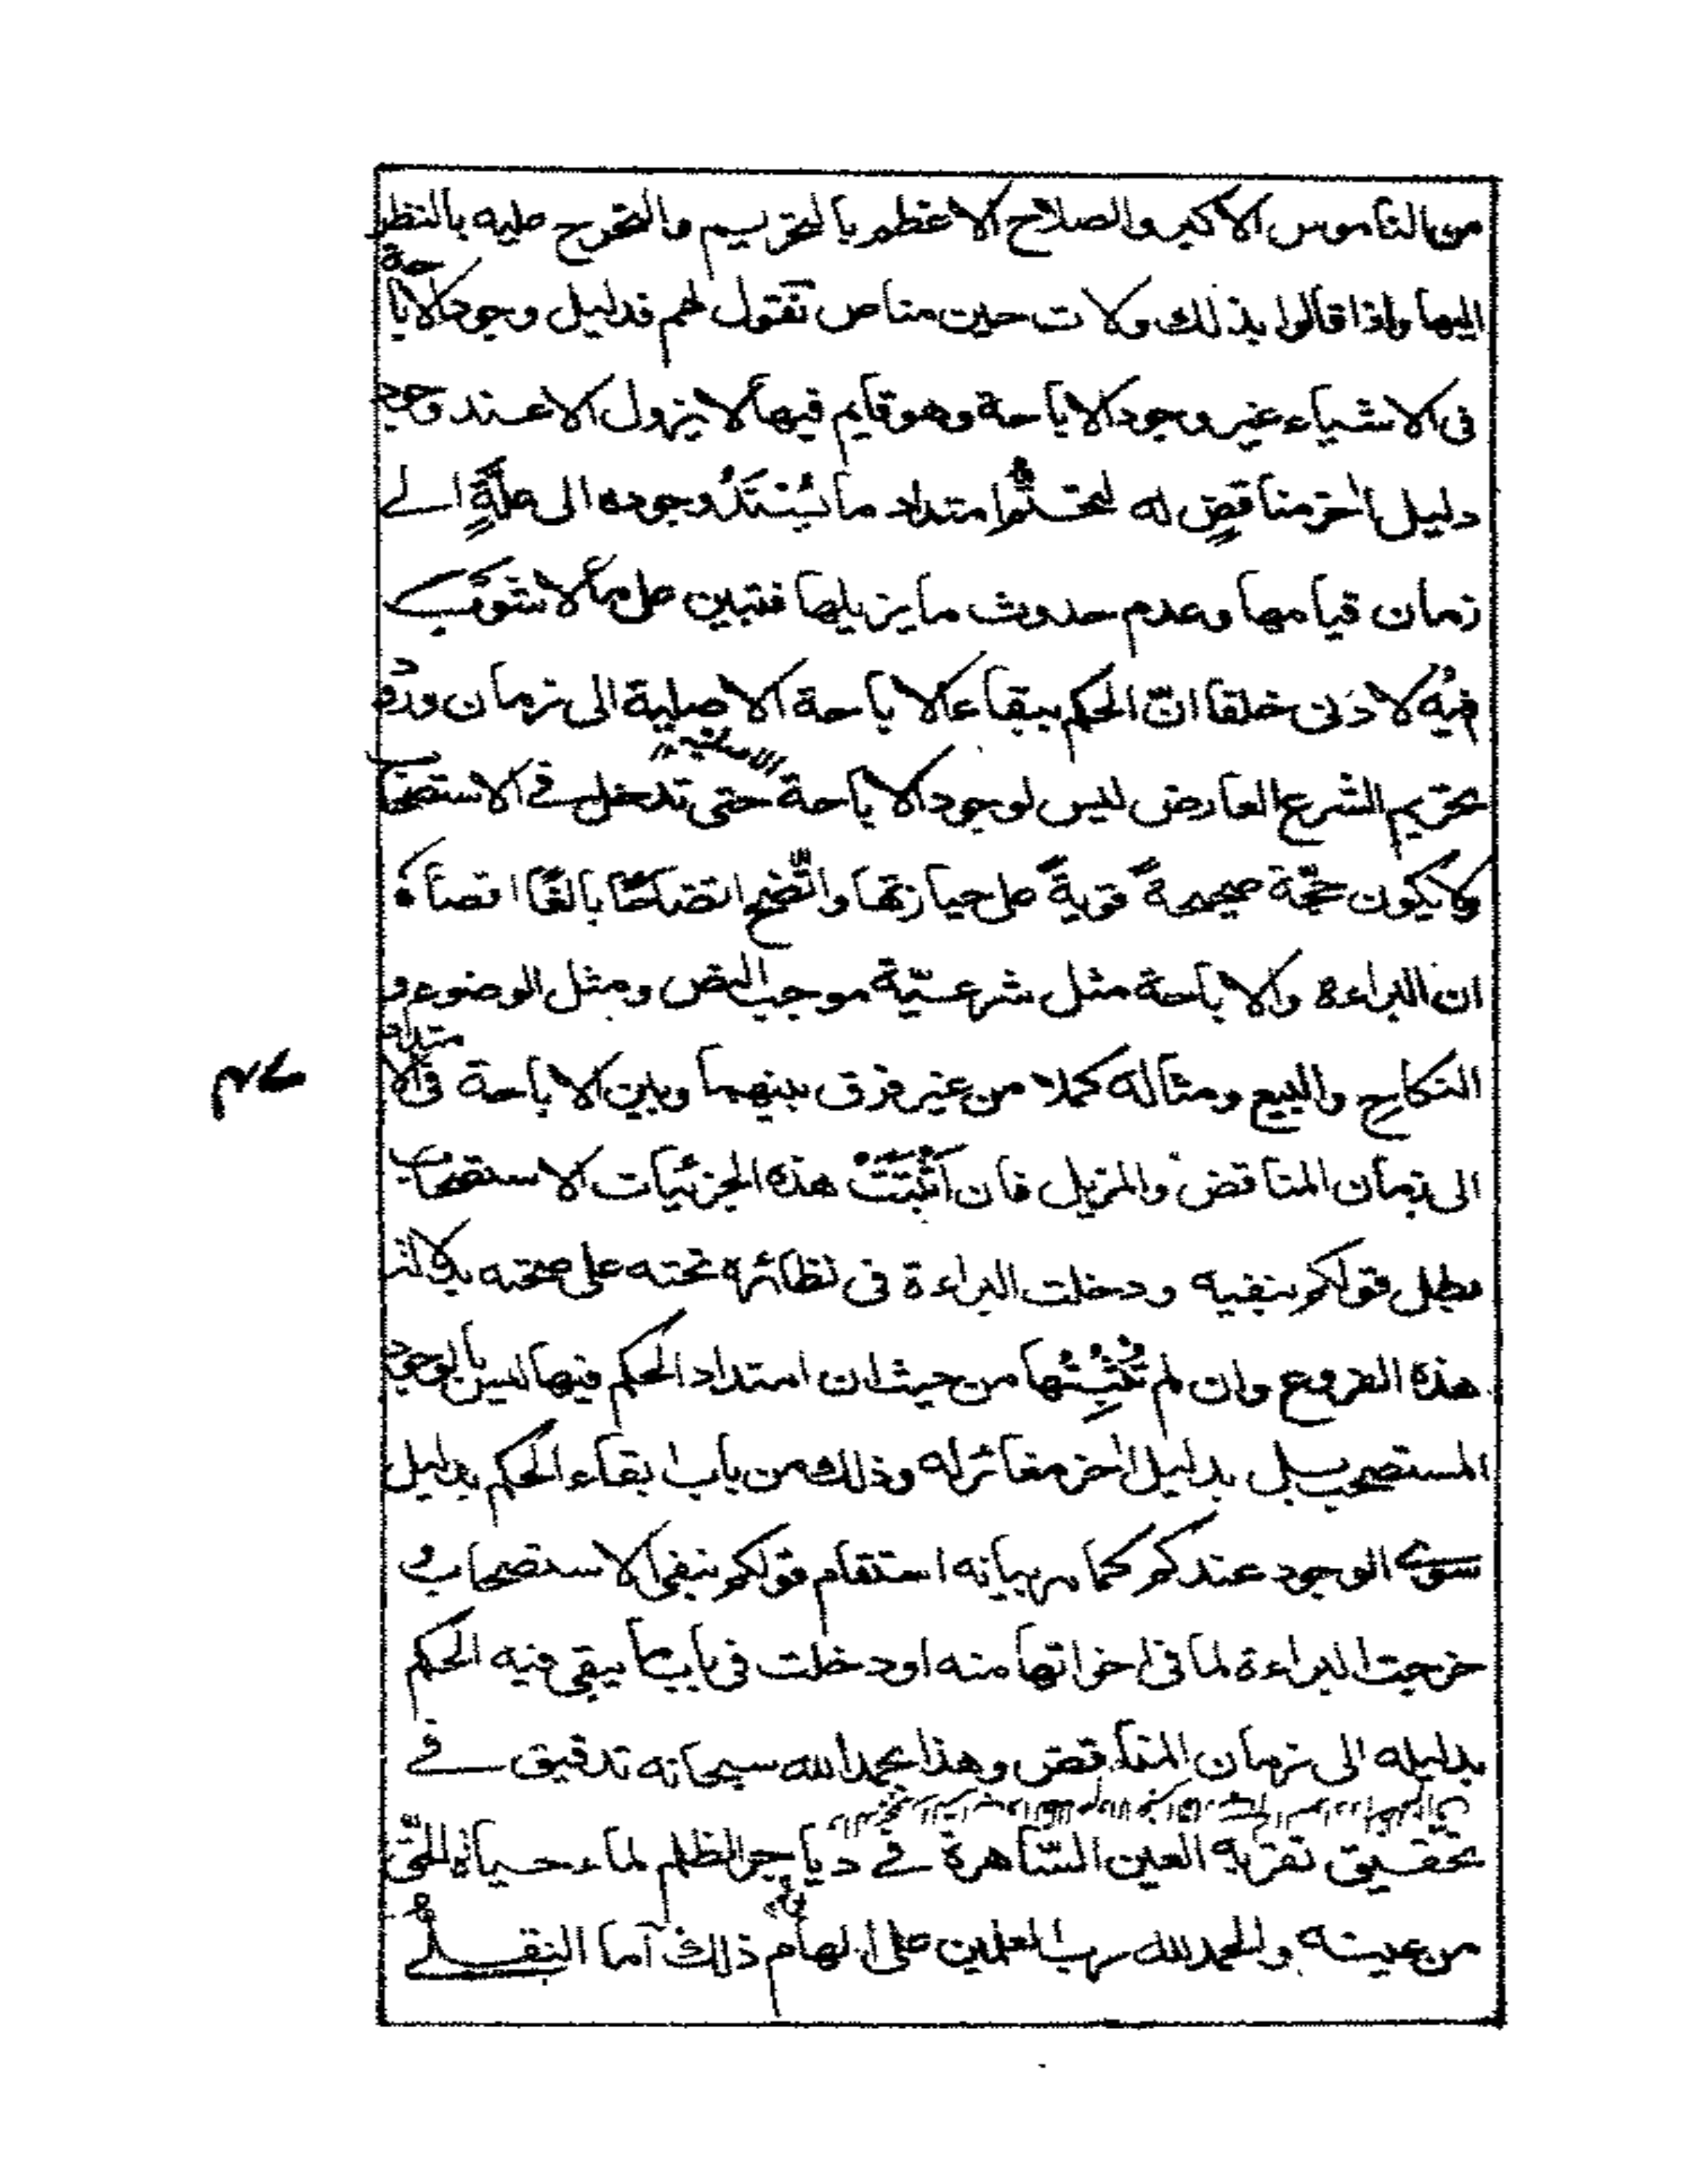 من الناموس الاكبر والصلاح الاعظم بالتحريم والتحرج عليه بالنظر
اليها واذا قالوا بذلك ولات حين مناص نقول لهم فدليل وجود الاباحة
فى الاشياء غير وجود الاباحة وهو قايم فيها لا يزول الا عند وجود
دليل اخر مناقض له لتحتم امتداد ما يستند وجوده الى علة الى
زمان قيامها وعدم حدوث ما يزيلها فتبين على ما لا شوب
فيه لادنى خلقا ان الحكم ببقاء الاباحة الاصلية الى زمان ورود
تحريم الشرع العارض ليس لوجود الاباحة حتى تدخل فى الاستصحاب
ولا يكون حجة صحيحة قوية على حيازتها واتضح اتضاحا بالغا اقصاه
ان البراءة والاباحة مثل شرعية موجب النص ومثل الوضوء و
النكاح والبيع ومثاله كملا من غير فرق بينهما وبين الاباحة فى الامتداد
الى زمان المناقض والمزيل فان اثبتت هذه الجزئيات الاستصحاب
بطل قولكم بنفيه ودخلت البراءة فى نظائره تحته على صحته بدلالة
هذه الفروع وان لم تثبتها من حيث ان امتداد الحكم فيها ليس بالوجود
المستصحب بل بدليل اخر مغائر له وذلك من باب ابقاء الحكم بدليل
سوى الوجود عندكم كما مر بيانه استقام قولكم بنفى الاستصحاب و
خرجت البراءة لما فى اخواتها منه او دخلت فى باب ما يبقى فيه الحكم
بدليله الى زمان المناقض وهذا بحمد الله سبحانه تدقيق فى
تحقيق تقر به العين الساهرة فى دياجر الظلم لماء حياة للحق
من عينه والحمد لله رب العلمين على الهام ذلك اما النقلى